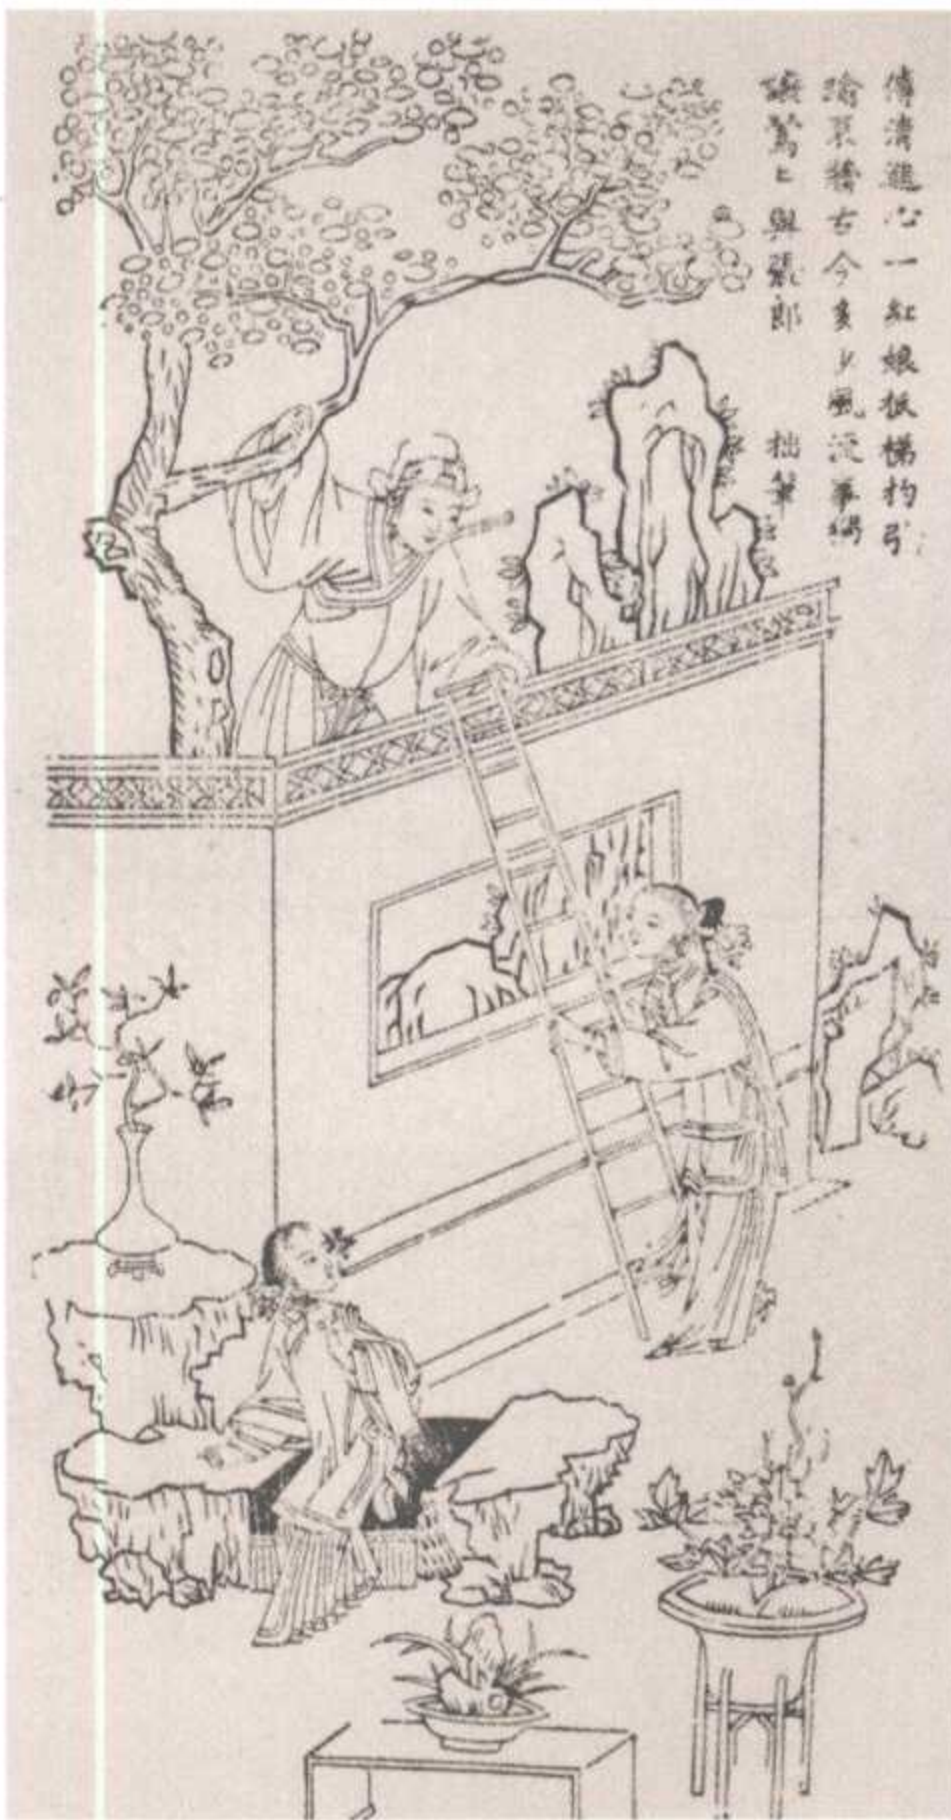 傳清遞心一紅娘扳梯杓引
踰東牆古今多少風流事獨
讓鶯々與張郎 拙筆